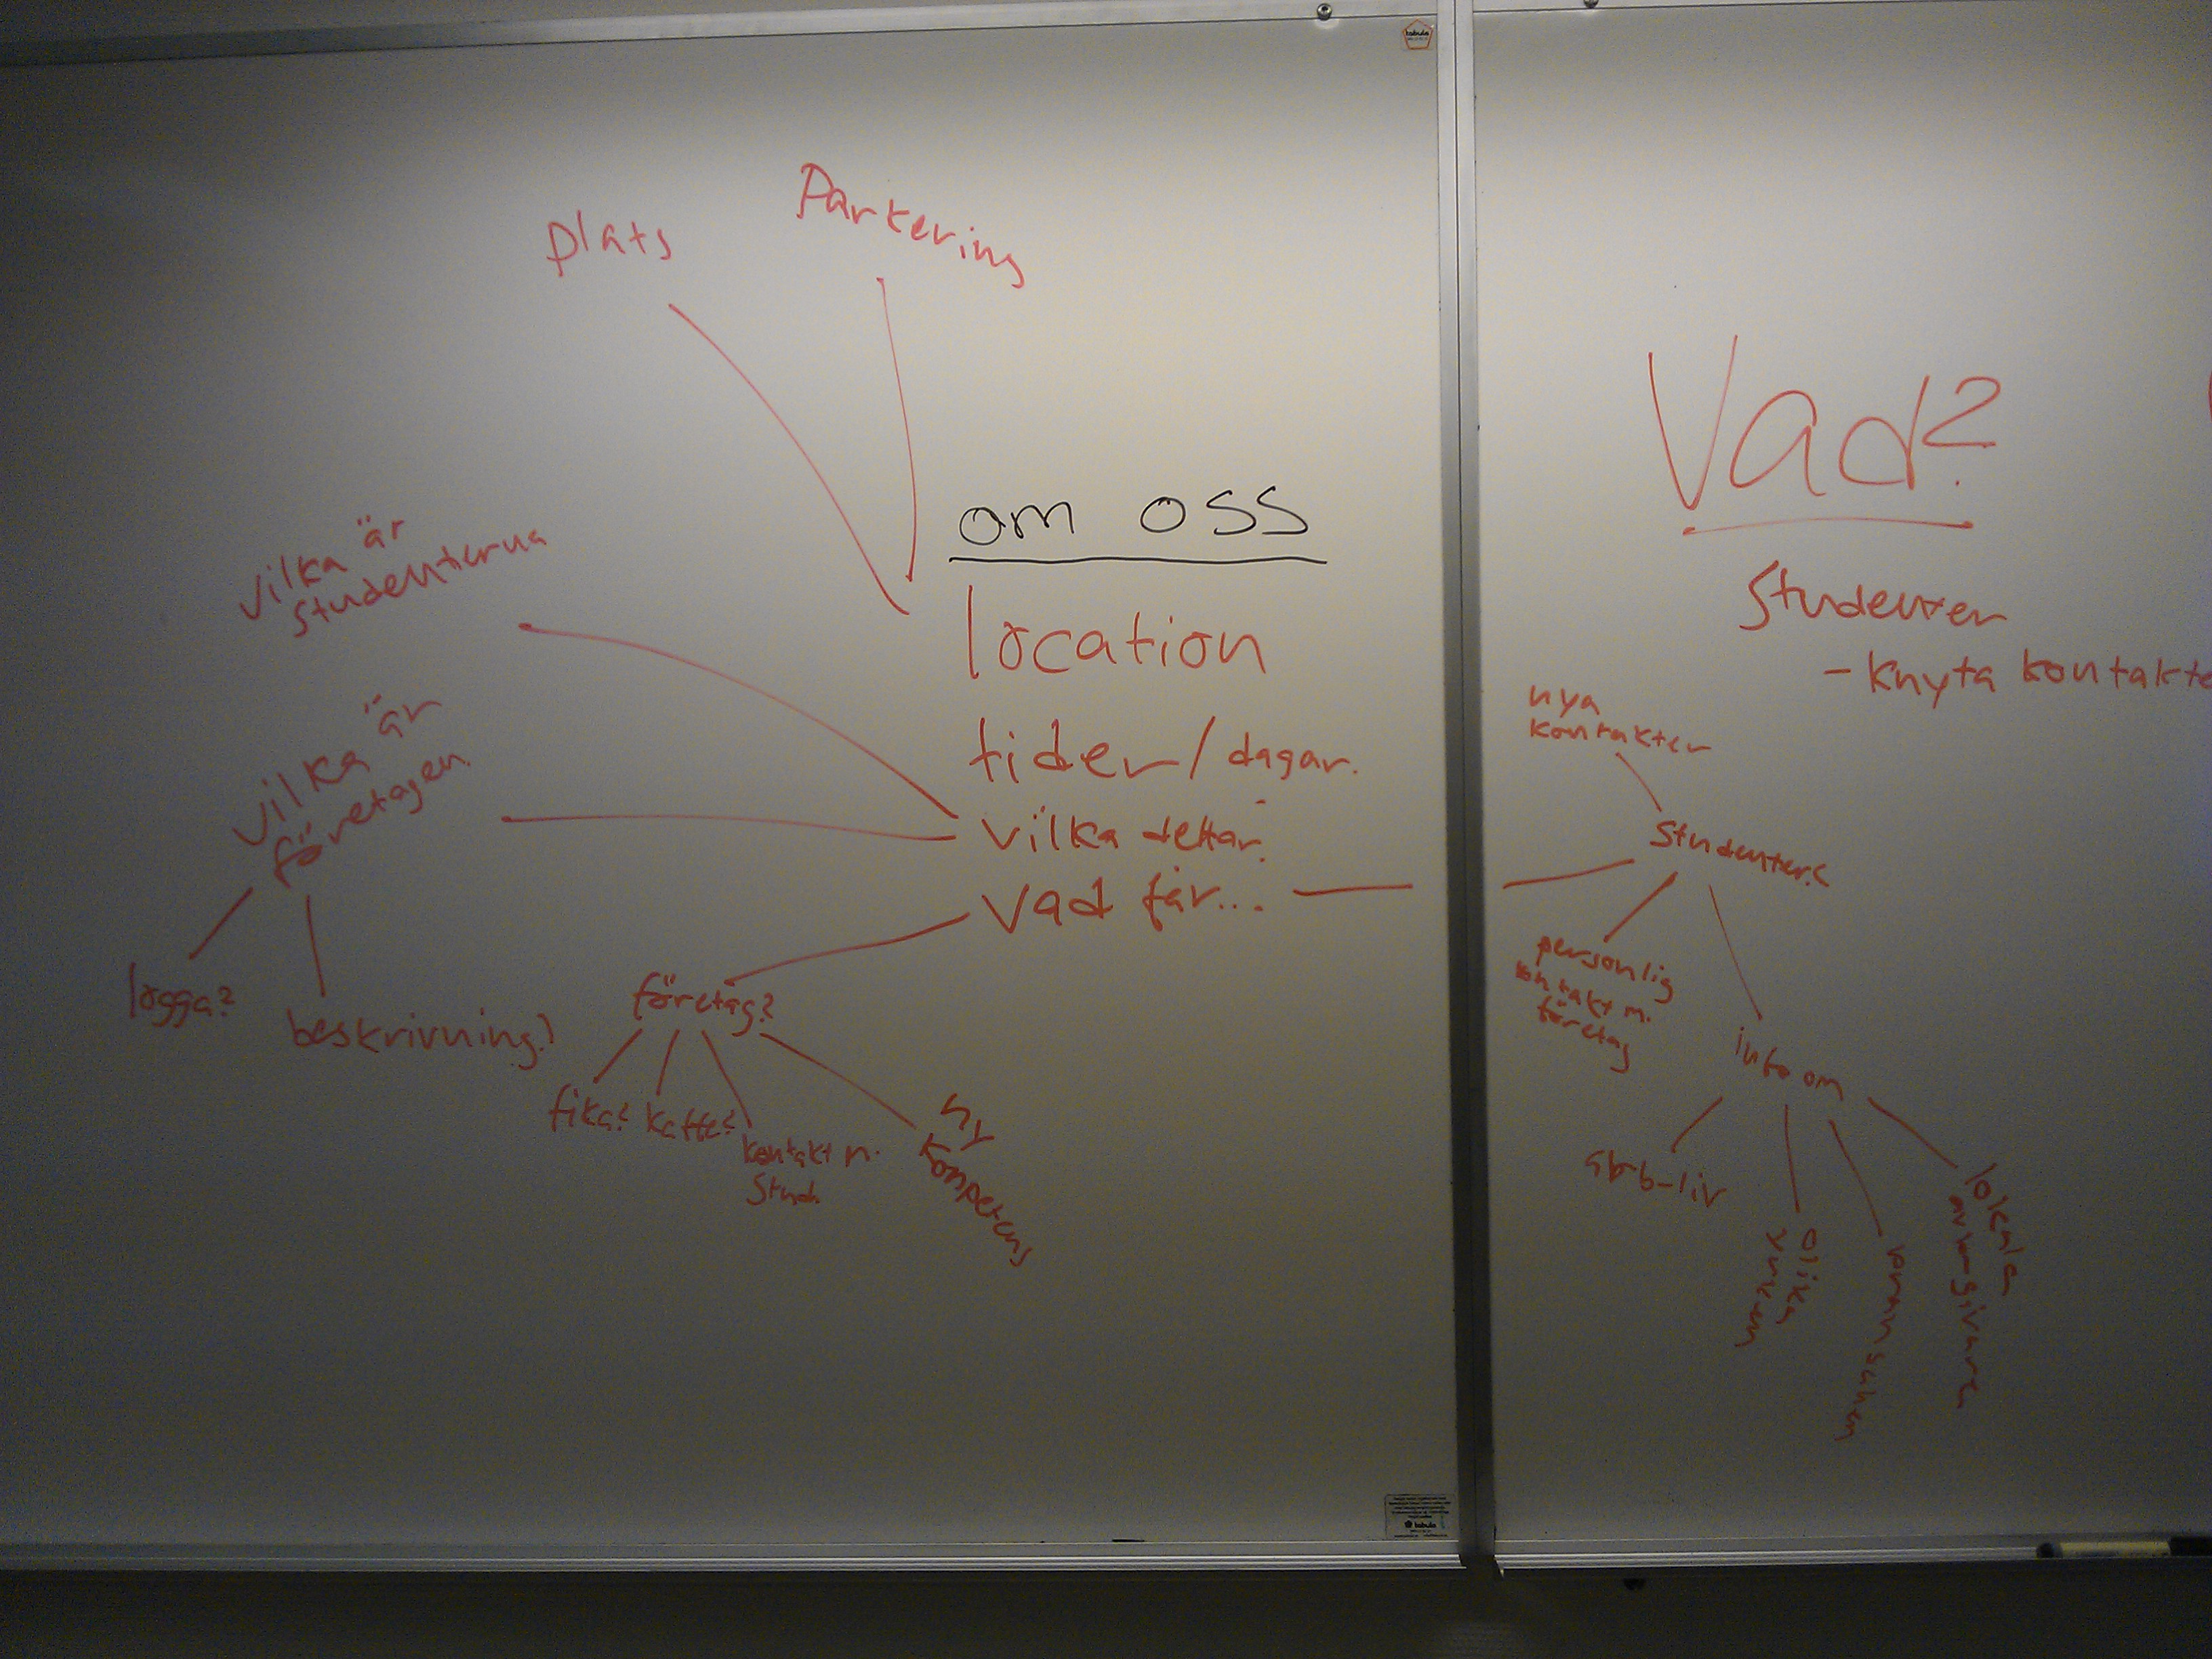 Plats
Parkering
om oss
location
tider/dagar.
vilka deltar?
vad får...
vilka är
studenterna
vilka är
företagen
logga?
beskrivning?
företag?
fika?
kaffe?
kontakt m.
stud.
ny
kompetens
Vad?
Studenter
- Knyta kontakte
nya
kontakter
Studenter?
personlig
kontakt m.
företag
info om
arb-liv
olika
yrken
branscher
lokala
tabula
tabula